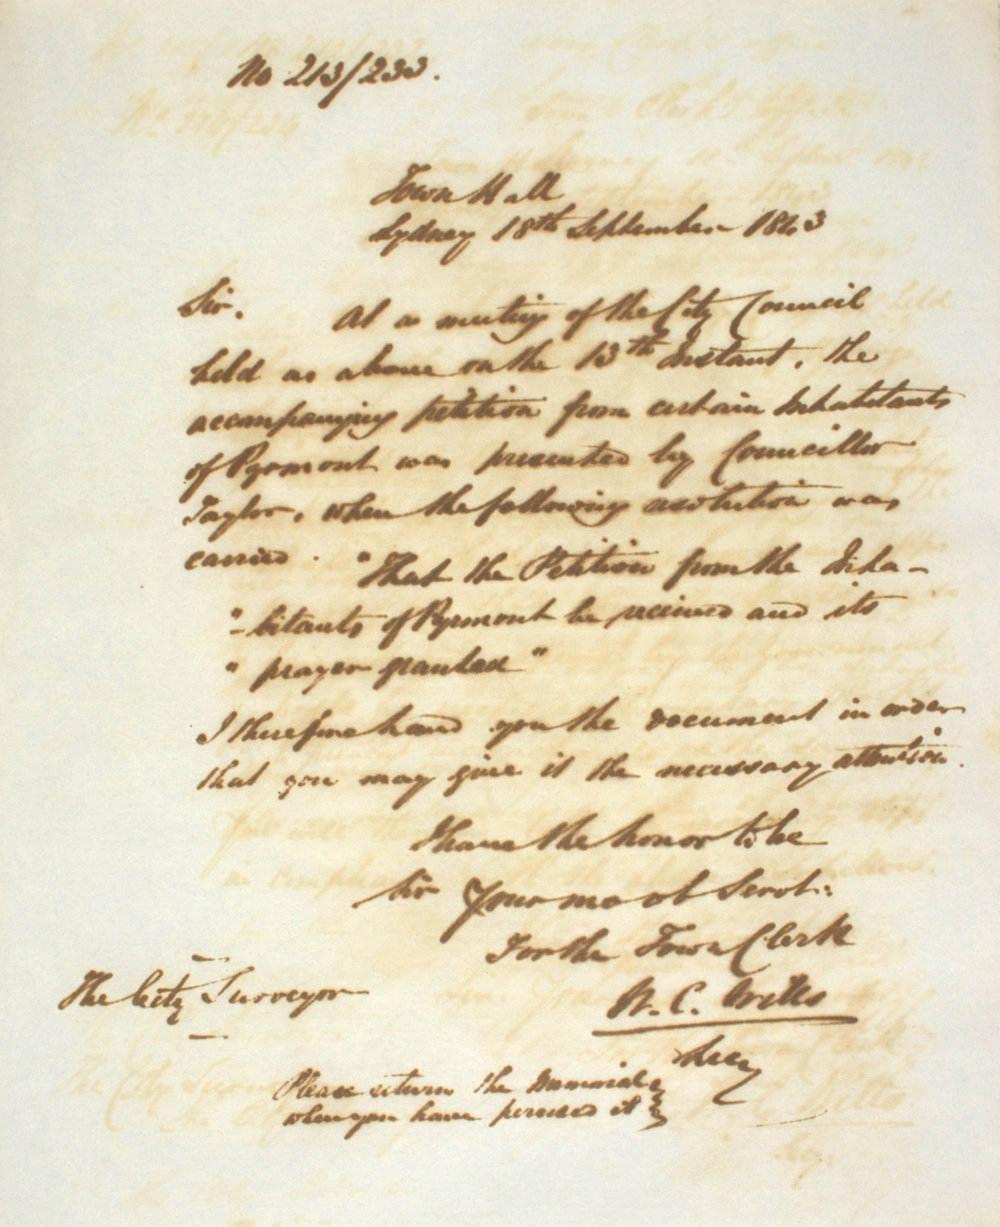 No 213/233.
Town Hall
Sydney 18th September 1843
Sir. At a meeting of the City Council
held as above on the 13th Instant, the
accompanying petition from certain Inhabitants
of Pyrmont was presented by Councillor
Taylor, when the following resolution was
carried. "That the Petition from the Inha-
"-bitants of Pyrmont be received and its
" prayer granted"
I therefore hand you the document in order
that you may give it the necessary attention.
I have the honor to be
Sir Your mo ob Servt:
For the Town Clerk
W. C. Wills
Secy
The City Surveyor
Please return the Memorial
when you have perused it